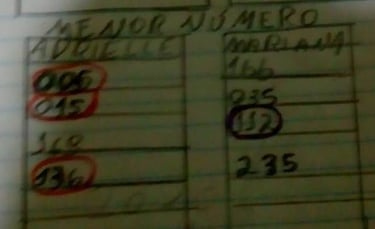 MENOR NÚMERO
ADRIELLE MARIANA
006 166
015 035
112
160
136 235